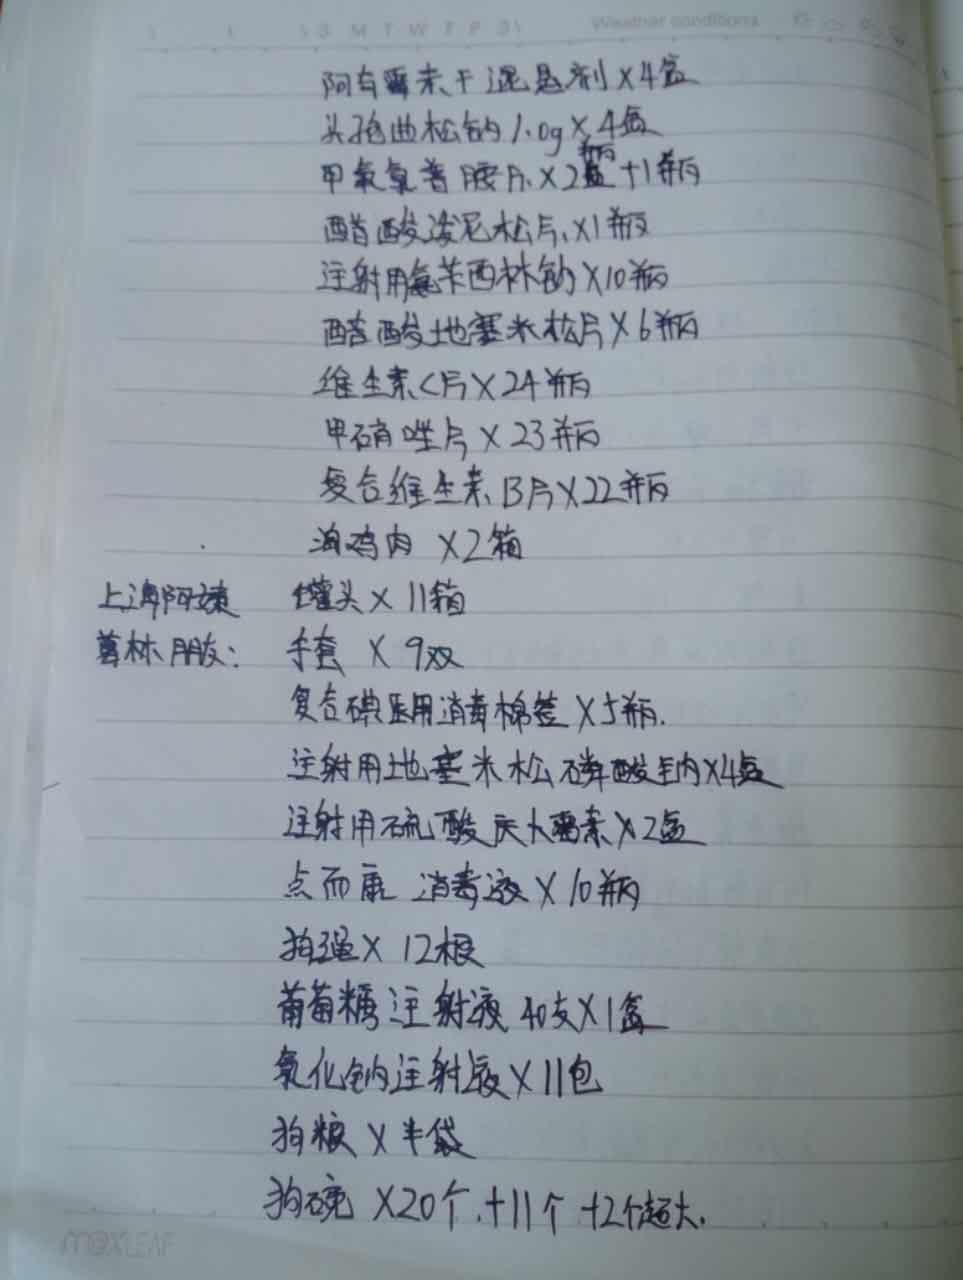 S M T W T F S Weather conditions
阿奇霉素干混悬剂×4盒
头孢曲松钠1.0g×4盒
甲氧氯普胺片×2瓶+1瓶
醋酸泼尼松片×1瓶
注射用氨苄西林钠×10瓶
醋酸地塞米松片×6瓶
维生素C片×24瓶
甲硝唑片×23瓶
复合维生素B片×22瓶
鸡肉×2箱
上海阿姨 罐头×11箱
朋友: 手套×9双
复合碘医用消毒棉签×5瓶.
注射用地塞米松磷酸钠×4盒
注射用硫酸庆大霉素×2盒
点而康 消毒液×10瓶
狗绳×12根
葡萄糖注射液 40支×1盒
氯化钠注射液×11包
狗粮×半袋
狗碗×20个.+11个+2个超大.
MOXLEAF